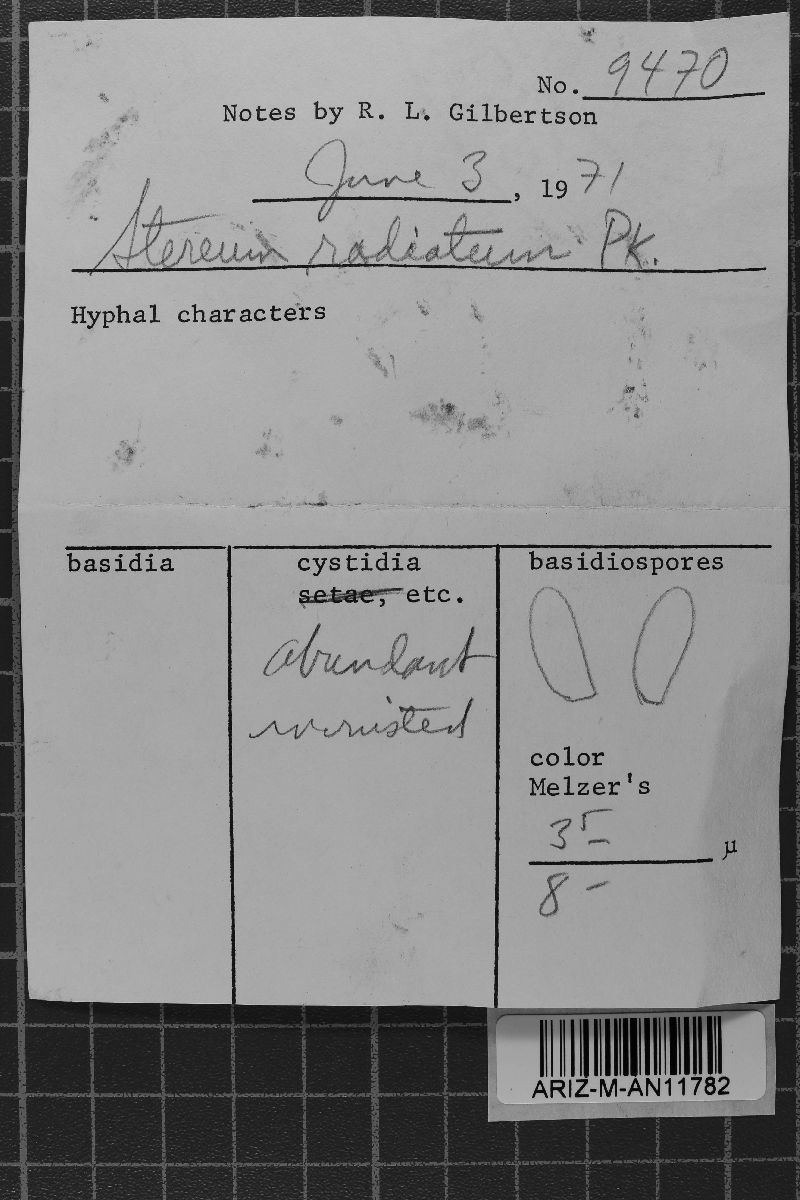 No. 9470
Notes by R. L. Gilbertson
June 3, 1971
Stereum radiatum Pk.
Hyphal characters
basidia
cystidia
setae, etc.
abundant
basidiospores
color
Melzer's
35- µ
8-
ARIZ-M-AN11782